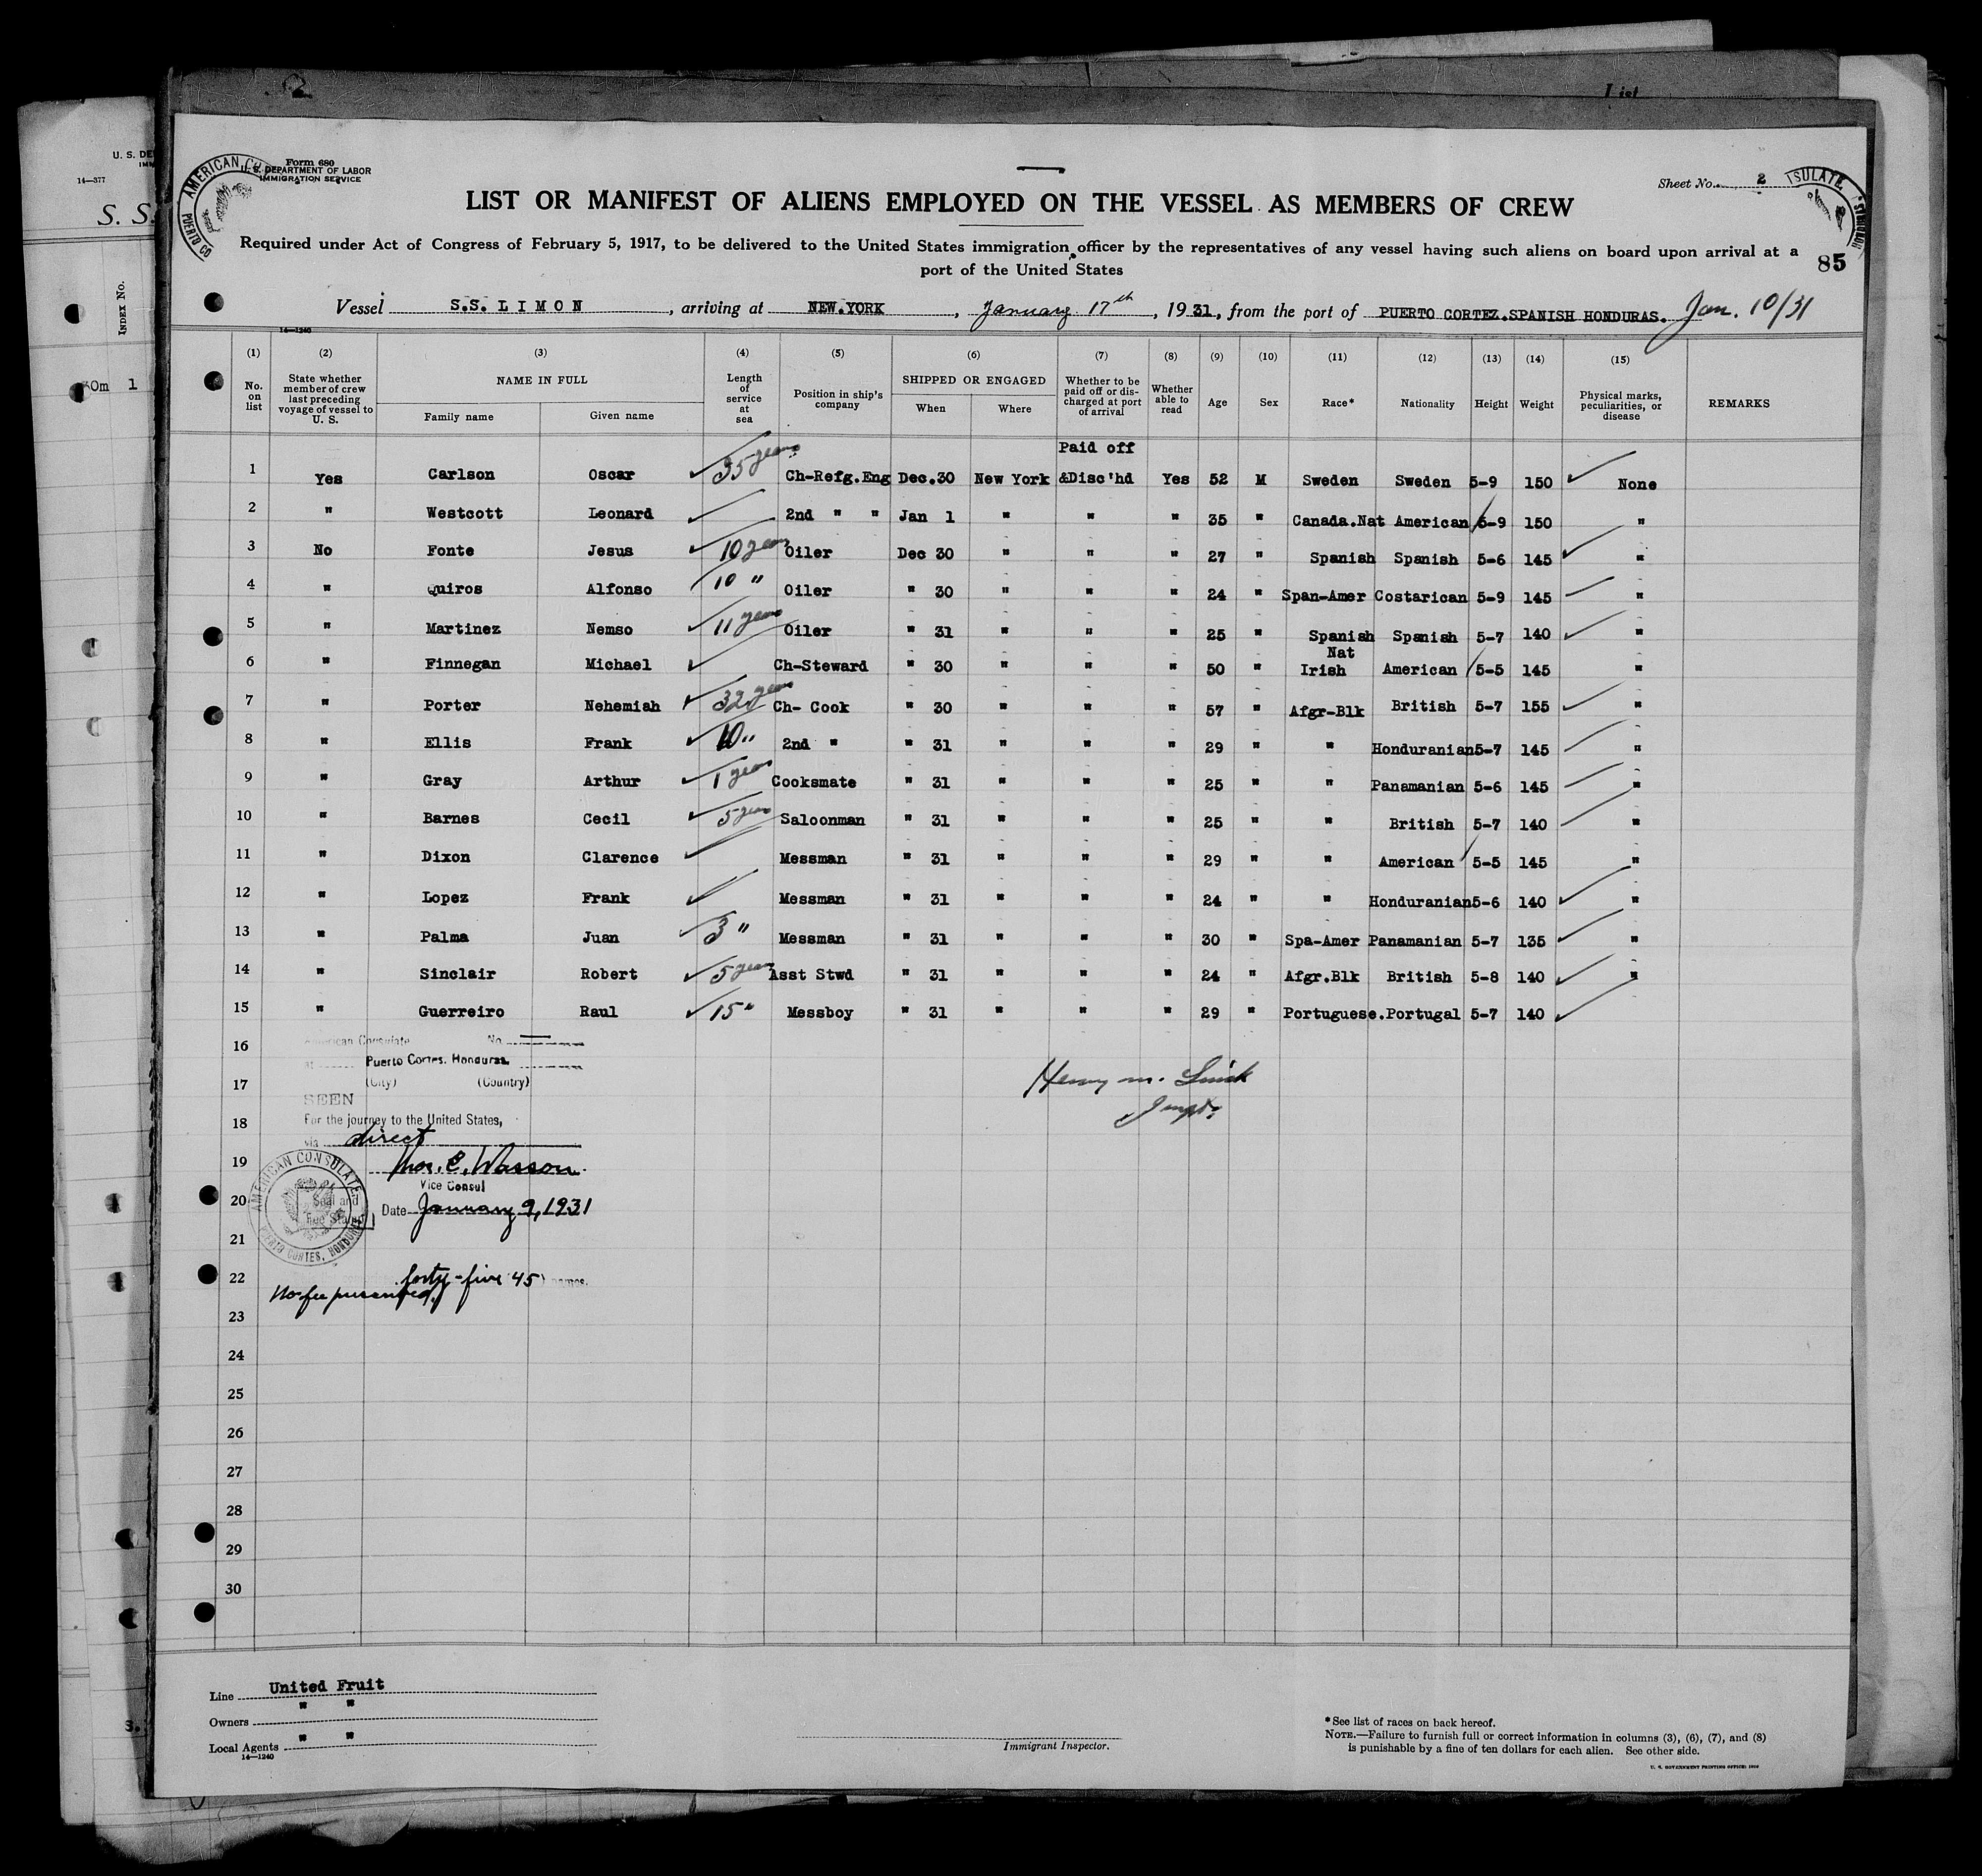 List
U. S. DE
14—377
S. S.
INDEX NO.
Om 1
Form 680
U. S. DEPARTMENT OF LABOR
IMMIGRATION SERVICE
AMERICAN CO
PUERTO CO
Sheet No. 2
SULATE
85
LIST OR MANIFEST OF ALIENS EMPLOYED ON THE VESSEL AS MEMBERS OF CREW
Required under Act of Congress of February 5, 1917, to be delivered to the United States immigration officer by the representatives of any vessel having such aliens on board upon arrival at a
port of the United States
Vessel S.S. LIMON, arriving at NEW.YORK, January 17th, 1931, from the port of PUERTO CORTEZ.SPANISH HONDURAS. Jan. 10/31
14—1240
(1) (2) (3) (4) (5) (6) (7) (8) (9) (10) (11) (12) (13) (14) (15)
No. on list
State whether member of crew last preceding voyage of vessel to U. S.
NAME IN FULL
Family name Given name
Length of service at sea
Position in ship's company
SHIPPED OR ENGAGED
When Where
Whether to be paid off or discharged at port of arrival
Whether able to read
Age Sex Race* Nationality Height Weight
Physical marks, peculiarities, or disease
REMARKS
Paid off
1 Yes Carlson Oscar 35 years Ch-Refg.Eng Dec.30 New York &Disc'hd Yes 52 M Sweden Sweden 5-9 150 None
2 " Westcott Leonard 2nd " " Jan 1 " " " 35 " Canada.Nat American 5-9 150 "
3 No Fonte Jesus 10 years Oiler Dec 30 " " " 27 " Spanish Spanish 5-6 145 "
4 " Quiros Alfonso 10 " Oiler " 30 " " " 24 " Span-Amer Costarican 5-9 145 "
5 " Martinez Nemso 11 years Oiler " 31 " " " 25 " Spanish Spanish 5-7 140 "
Nat
6 " Finnegan Michael Ch-Steward " 30 " " " 50 " Irish American 5-5 145 "
7 " Porter Nehemiah 32 years Ch- Cook " 30 " " " 57 " Afgr-Blk British 5-7 155 "
8 " Ellis Frank 10 " 2nd " " 31 " " " 29 " " Honduranian 5-7 145 "
9 " Gray Arthur 1 year Cooksmate " 31 " " " 25 " " Panamanian 5-6 145 "
10 " Barnes Cecil 5 years Saloonman " 31 " " " 25 " " British 5-7 140 "
11 " Dixon Clarence Messman " 31 " " " 29 " " American 5-5 145 "
12 " Lopez Frank Messman " 31 " " " 24 " " Honduranian 5-6 140 "
13 " Palma Juan 3 " Messman " 31 " " " 30 " Spa-Amer Panamanian 5-7 135 "
14 " Sinclair Robert 5 years Asst Stwd " 31 " " " 24 " Afgr.Blk British 5-8 140 "
15 " Guerreiro Raul 15 " Messboy " 31 " " " 29 " Portuguese. Portugal 5-7 140
16
17
18
19
20
21
22
23
24
25
26
27
28
29
30
American Consulate No.
at Puerto Cortes, Honduras.
(City) (Country)
SEEN
For the journey to the United States,
via direct
Thos. C. Wasson
Vice Consul
Date January 9, 1931
AMERICAN CONSULATE
PUERTO CORTES, HONDURAS
Seal and
Fee Stamp
forty-five 45) names.
No fee prescribed.
Henry M.
Inspt.
Line United Fruit
Owners " "
Local Agents " "
14—1240
Immigrant Inspector.
* See list of races on back hereof.
NOTE.—Failure to furnish full or correct information in columns (3), (6), (7), and (8)
is punishable by a fine of ten dollars for each alien. See other side.